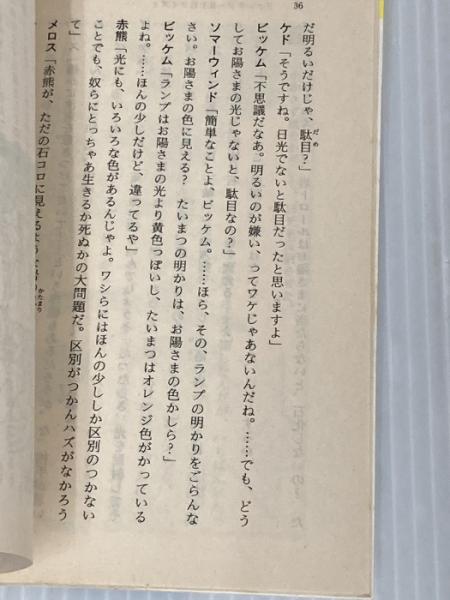 36
だ明るいだけじゃ、駄目？」
ケド「そうですね。日光でないと駄目だったと思いますよ」
ピッケム「不思議だなあ。明るいのが嫌い、ってワケじゃあないんだね。……でも、どう
してお陽さまの光じゃないと、駄目なの？」
ソマーウィンド「簡単なことよ、ピッケム。……ほら、その、ランプの明かりをごらんな
さい。お陽さまの色に見える？　たいまつの明かりは、お陽さまの色かしら？」
ピッケム「ランプはお陽さまの光より黄色っぽいし、たいまつはオレンジ色がかっている
よね。……ほんの少しだけど、違ってるや」
赤熊「光にも、いろいろな色があるんじゃよ。ワシらにはほんの少ししか区別のつかない
ことでも、奴らにとっちゃあ生きるか死ぬかの大問題だ。区別がつかんハズがなかろう
て」
メロス「赤熊が、ただの石コロに見えるよう